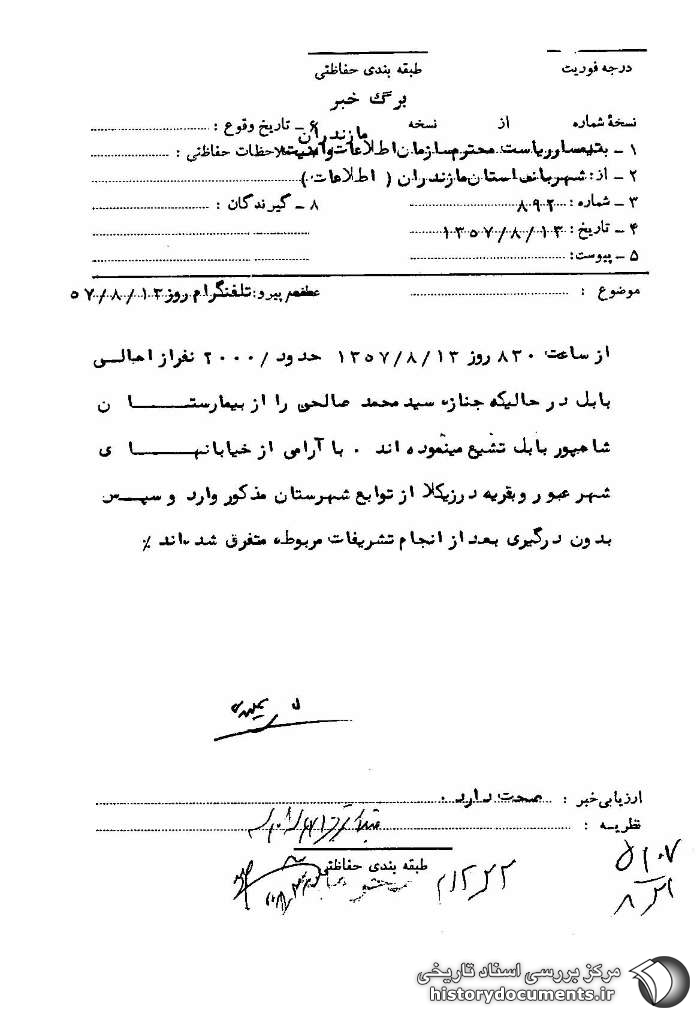 درجه فوریت
طبقه بندی حفاظتی
برگ خبر
نسخهٔ شماره از نسخه
۶ - تاریخ وقوع :
مازندران
۱ - بتیمسار ریاست محترم سازمان اطلاعات و امنیت
ملاحظات حفاظتی :
۲ - از: شهربانی استان مازندران ( اطلاعات )
۳ - شماره : ۸۹۲
۸ - گیرندگان :
۴ - تاریخ : ۱۳۵۷/۸/۱۳
۵ - پیوست:
موضوع :
پیرو: تلفنگرام روز ۵۷/۸/۱۳
از ساعت ۸۳۰ روز ۱۳۵۷/۸/۱۳ حدود /۲۰۰۰ نفر از اهالی
بابل در حالیکه جنازه سید محمد صالحی را از بیمارستان
شاهپور بابل تشیع مینموده اند . با آرامی از خیابانهای
شهر عبور و بقریه درزیکلا از توابع شهرستان مذکور وارد و سپس
بدون درگیری بعد از انجام تشریفات مربوطه متفرق شده اند ٪
ارزیابی خبر : صحت دارد .
نظریه :
طبقه بندی حفاظتی
مرکز بررسی اسناد تاریخی
historydocuments.ir